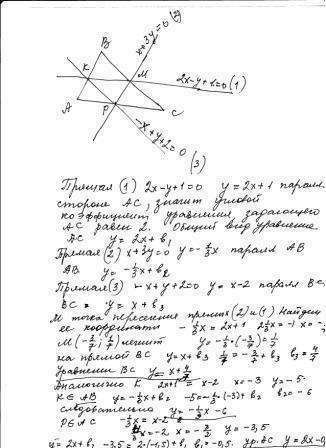 x+3y=0 (2)
B
K
M
2x-y+1=0 (1)
A
P
C
-x+y+2=0
(3)
Прямая (1) 2x-y+1=0 y=2x+1 паралл
стороне AC, значит угловой
коэффициент уравнения, задающего
AC равен 2. Общий вид уравнения
AC y=2x+b₁
Прямая (2) x+3y=0 y=-⅓x паралл AB
AB y=-⅓x+b₂
Прямая (3) -x+y+2=0 y=x-2 паралл BC
BC = y=x+b₃
M точка пересечения прямых (2) и (1) Найдем
ее координаты -⅓x=2x+1 2⅓x=-1 x=-
M(-3/7; 1/7) лежит y=-⅓·(-3/7)=1/7
на прямой BC y=x+b₃ 1/7=-3/7+b₃ b₃=4/7
уравнение BC y=x+4/7
Аналогично K 2x+1=x-2 x=-3 y=-5
K∈AB y=-⅓x+b₂ -5=-⅓(-3)+b₂ b₂=-6
следовательно y=-⅓x-6
P∈AC -⅓x=x-2
x=-2 y=-3,5
y=2x+b₁ -3,5=2·(-1,5)+b₁ b₁=-0,5